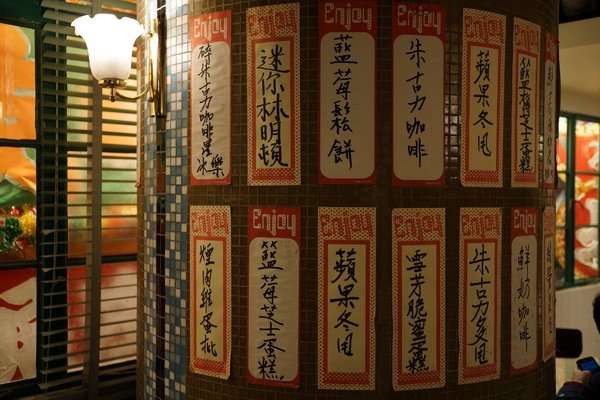 Enjoy
碎朱古力咖啡星冰樂
Enjoy
迷你林明頓
Enjoy
藍莓鬆餅
Enjoy
朱古力咖啡
Enjoy
蘋果冬甩
Enjoy
籃莓芝士蛋糕
Enjoy
煙肉雞蛋批
Enjoy
籃莓芝士蛋糕
Enjoy
蘋果冬甩
Enjoy
雲芳脆蜜蛋糕
Enjoy
朱古力冬甩
Enjoy
鮮奶咖啡